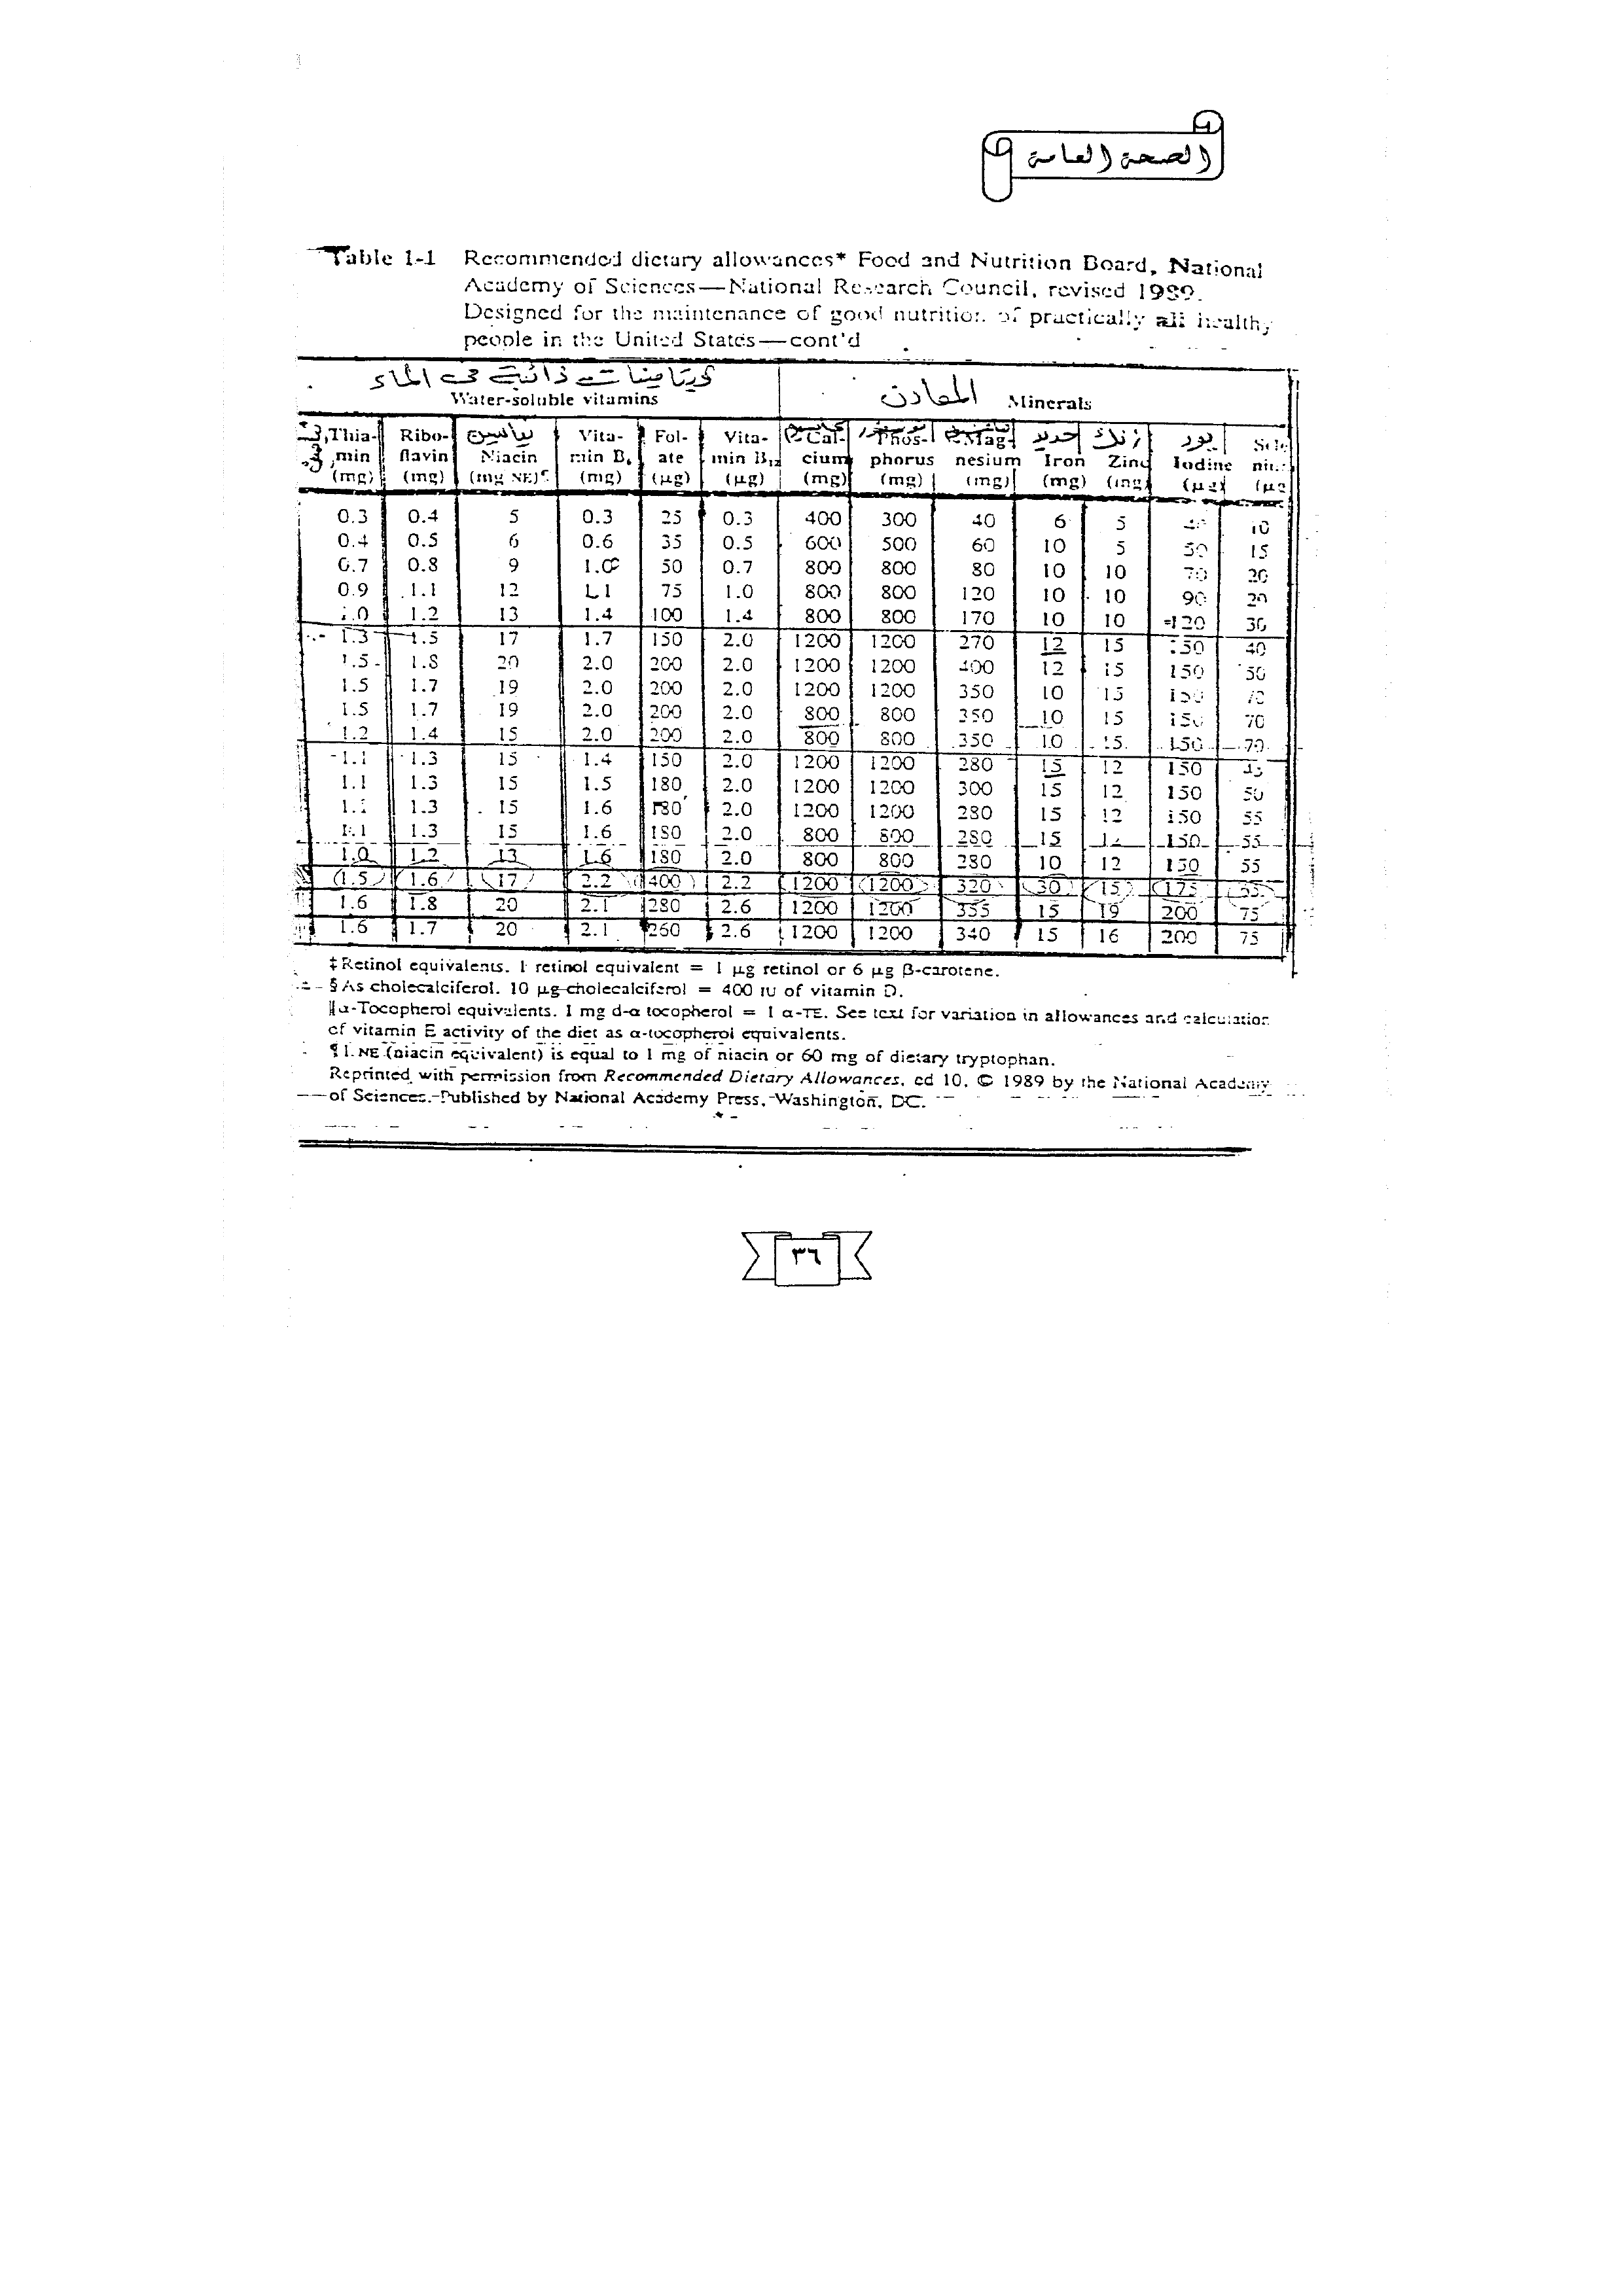 الصحة العامة
Table 1-1 Recommended dietary allowances* Food and Nutrition Board, National
Academy of Sciences—National Research Council, revised 1989.
Designed for the maintenance of good nutrition of practically all healthy
people in the United States—cont'd
فيتامينات ذائبة في الماء المعادن
Water-soluble vitamins Minerals
نياسين حديد زنك يود
Thia- Ribo- Vita- Fol- Vita- Cal- Phos- Mag-
min flavin Niacin min B6 ate min B12 cium phorus nesium Iron Zinc Iodine
(mg) (mg) (mg NE)¶ (mg) (µg) (µg) (mg) (mg) (mg) (mg) (mg) (µg)
0.3 0.4 5 0.3 25 0.3 400 300 40 6 5 10
0.4 0.5 6 0.6 35 0.5 600 500 60 10 5 50 15
0.7 0.8 9 1.0 50 0.7 800 800 80 10 10 70 20
0.9 1.1 12 1.1 75 1.0 800 800 120 10 10 90 20
1.0 1.2 13 1.4 100 1.4 800 800 170 10 10 120 30
1.3 1.5 17 1.7 150 2.0 1200 1200 270 12 15 150 40
1.5 1.8 20 2.0 200 2.0 1200 1200 400 12 15 150 50
1.5 1.7 19 2.0 200 2.0 1200 1200 350 10 15 150 70
1.5 1.7 19 2.0 200 2.0 800 800 350 10 15 150 70
1.2 1.4 15 2.0 200 2.0 800 800 350 10 15 150 70
1.1 1.3 15 1.4 150 2.0 1200 1200 280 15 12 150 45
1.1 1.3 15 1.5 180 2.0 1200 1200 300 15 12 150 50
1.1 1.3 15 1.6 180 2.0 1200 1200 280 15 12 150 55
1.1 1.3 15 1.6 180 2.0 800 800 280 15 12 150 55
1.0 1.2 13 1.6 180 2.0 800 800 280 10 12 150 55
(1.5) (1.6) (17) 2.2 (400) 2.2 (1200) (1200) 320 (30) (15) (175) (65)
1.6 1.8 20 2.1 280 2.6 1200 1200 355 15 19 200 75
1.6 1.7 20 2.1 260 2.6 1200 1200 340 15 16 200 75
‡Retinol equivalents. 1 retinol equivalent = 1 µg retinol or 6 µg β-carotene.
§As cholecalciferol. 10 µg cholecalciferol = 400 IU of vitamin D.
‖α-Tocopherol equivalents. 1 mg d-α tocopherol = 1 α-TE. See text for variation in allowances and calculation
of vitamin E activity of the diet as α-tocopherol equivalents.
¶1 NE (niacin equivalent) is equal to 1 mg of niacin or 60 mg of dietary tryptophan.
Reprinted with permission from Recommended Dietary Allowances, ed 10, © 1989 by the National Academy
of Sciences. Published by National Academy Press, Washington, DC.
٣٦